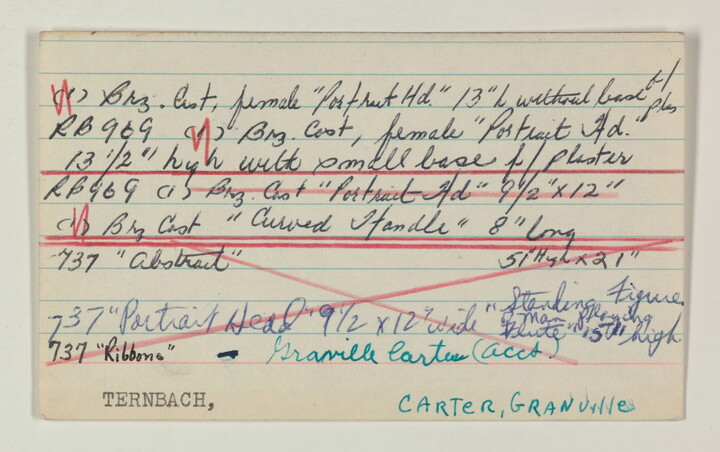 (1) Brz. Cast, female "Portrait Hd." 13" h without base f/ Plas
RB969 (1) Brz. Cast, female "Portrait Hd."
13 1/2" high with small base f/ plaster
RB969 (1) Brz. Cast "Portrait Hd" 9 1/2" x 12"
(1) Brz Cast "Curved Handle" 8" long
737 "Abstract" 51" High x 21"
737 "Portrait Head" 9 1/2 x 12" wide "Standing Figure
a man Playing
Flute" 15" high
737 "Ribbons" - Granville Carter (acct.)
TERNBACH, CARTER, GRANVILLE